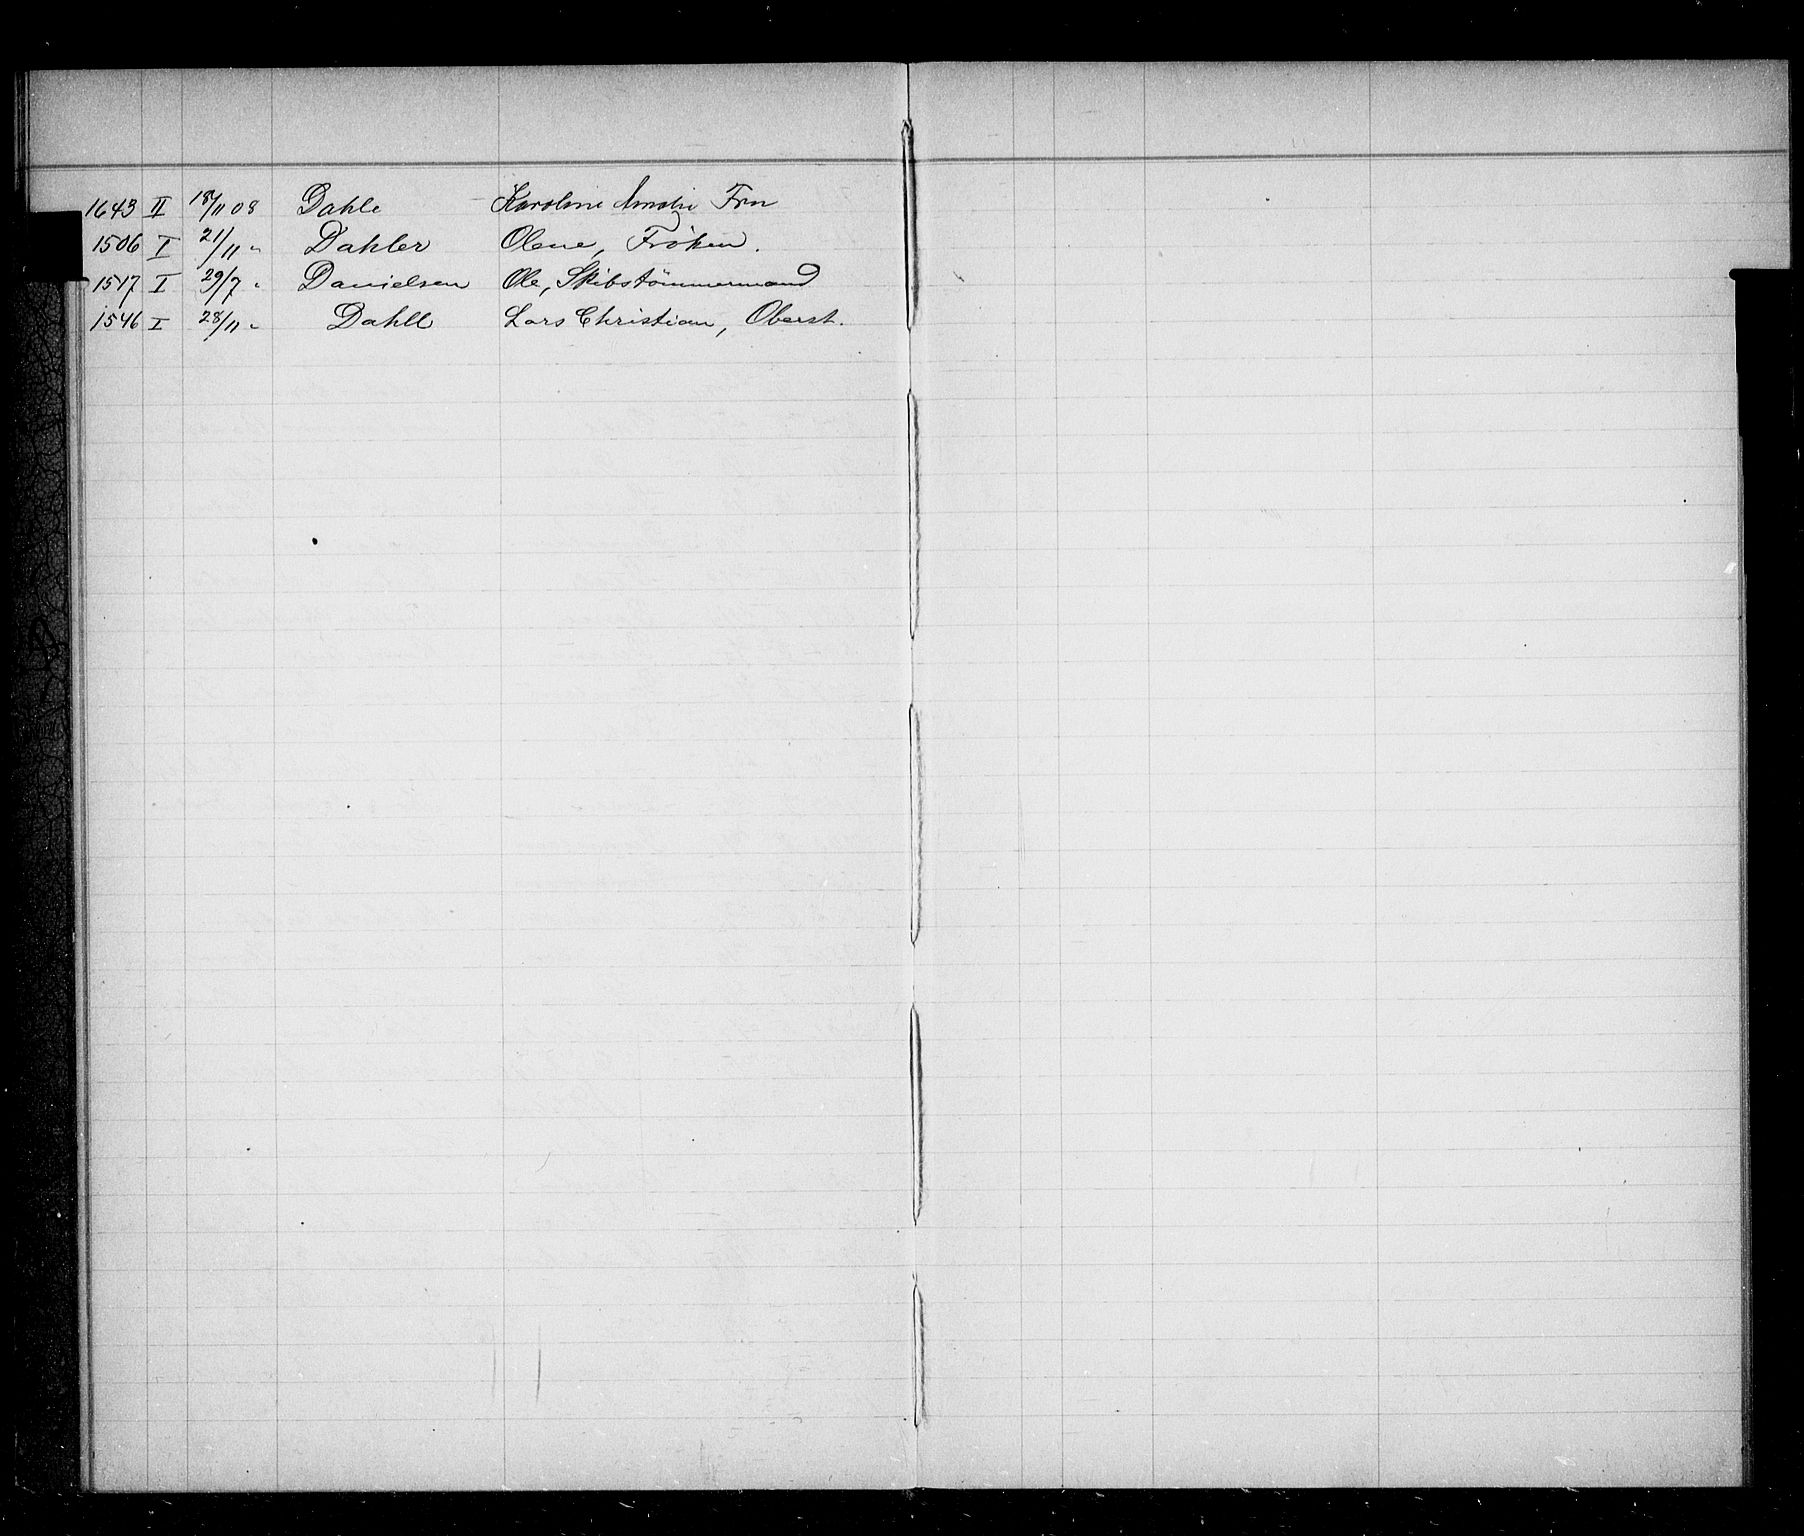 1643 II 18/11 08 Dahle Karoline Amalie Fru
1506 I 21/11 " Dahler Olene, Frøken.
1517 I 29/7 " Danielsen Ole, Skibstømmermand
1546 I 28/11 " Dahll Lars Christian, Oberst.